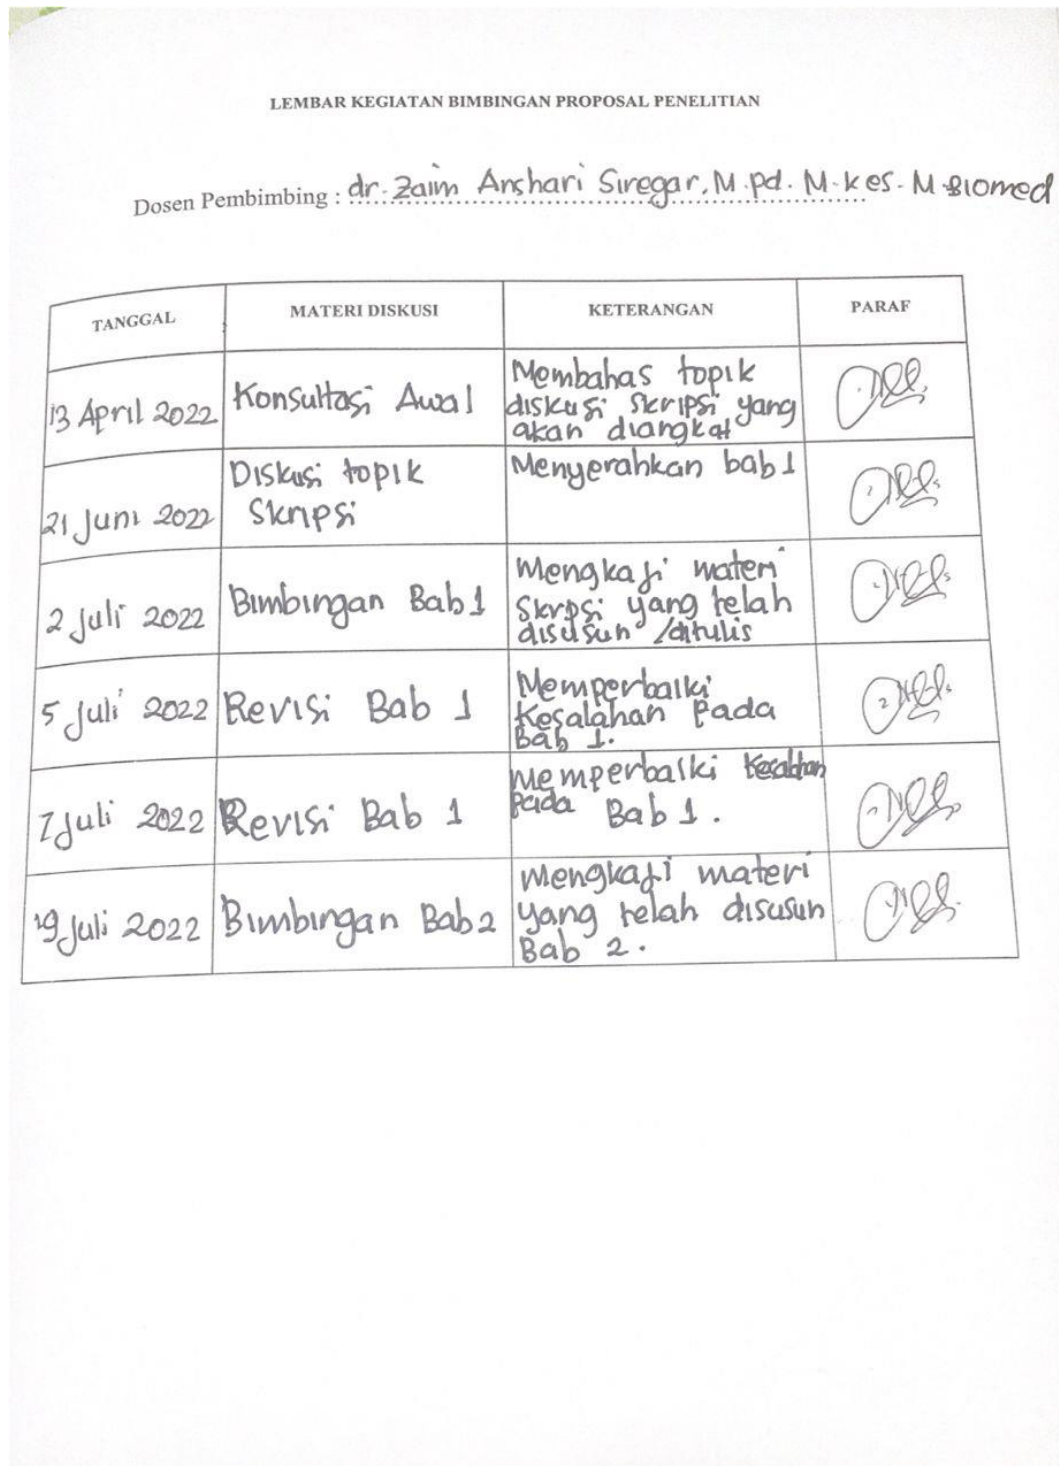 LEMBAR KEGIATAN BIMBINGAN PROPOSAL PENELITIAN
Dosen Pembimbing : dr. Zaim Anshari Siregar, M.pd. M.kes. M.Biomed
TANGGAL MATERI DISKUSI KETERANGAN PARAF
13 April 2022 Konsultasi Awal Membahas topik
diskusi skripsi yang
akan diangkat
21 Juni 2022 Diskusi topik
Skripsi
Menyerahkan bab 1
2 Juli 2022 Bimbingan Bab 1 Mengkaji materi
Skrpsi yang telah
disusun /ditulis
5 Juli 2022 Revisi Bab 1 Memperbaiki
Kesalahan Pada
Bab 1.
7 Juli 2022 Revisi Bab 1 Memperbaiki Kesalahan
Pada Bab 1.
19 Juli 2022 Bimbingan Bab 2 Mengkaji materi
yang telah disusun
Bab 2.